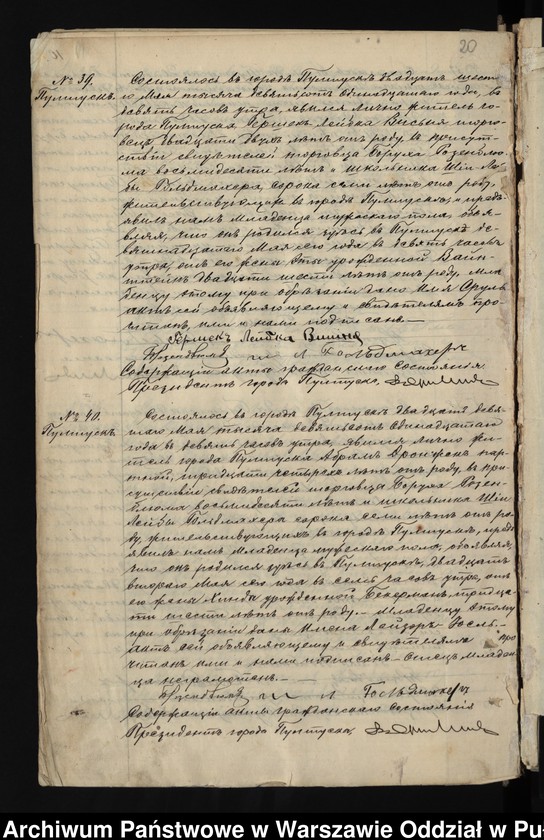 20
№ 39.
Пултускъ.
Состоялось въ городѣ Пултускѣ двадцать шест
го Мая тысяча девятьсотъ одинадцатаго года, въ
девять часовъ утра, явился лично житель го
рода Пултуска Гершекъ Лейбка торго
вецъ двадцати двухъ лѣтъ отъ роду, въ присут
ствіи свидѣтелей торговца Беруха Розенблю
ма восьмидесяти лѣтъ и школьника Шіи Лей
бы Гольдмахера, сорока семи лѣтъ отъ роду,
жительствующихъ въ городѣ Пултускѣ, и предъ
явилъ намъ младенца мужескаго пола, объя
вляя, что онъ родился здѣсь въ Пултускѣ де
вятнадцатаго Мая сего года въ девять часовъ
утра, отъ его жены урожденной Вайн
штейнъ двадцати шести лѣтъ отъ роду, Мла
денцу этому при обрѣзаніи дано имя Сруль
актъ сей объявляющему и свидѣтелямъ про
читанъ, ими и нами подписанъ.—
Гершек Лейбка
Ш Л Гольдмахеръ
Содержащій акты гражданскаго состоянія
Президентъ города Пултуска
№ 40.
Пултускъ.
Состоялось въ городѣ Пултускѣ двадцать девя
таго Мая тысяча девятьсотъ одинадцатаго
года въ девять часовъ утра, явился лично жи
тель города Пултуска Абрамъ пор
тной, тридцати четырехъ лѣтъ отъ роду, въ при
сутствіи свидѣтелей торговца Беруха Розен
блюма восьмидесяти лѣтъ и школьника Шіи
Лейбы Гольдмахера сорока семи лѣтъ отъ ро
ду, жительствующихъ въ городѣ Пултускѣ, предъ
явилъ намъ младенца мужескаго пола, объявляя,
что онъ родился здѣсь въ Пултускѣ, двадцать
втораго Мая сего года въ семь часовъ утра, отъ
его жены урожденной тридца
ти шести лѣтъ отъ роду.— Младенцу этому
при обрѣзаніи даны имена Лейзоръ-
актъ сей объявляющему и свидѣтелямъ про
читанъ ими и нами подписанъ— отецъ младен
ца неграмотенъ.—
Ш Л Гольдмахеръ
Содержащій акты гражданскаго состоянія
Президентъ города Пултуска
Archiwum Państwowe w Warszawie Oddział w Pu